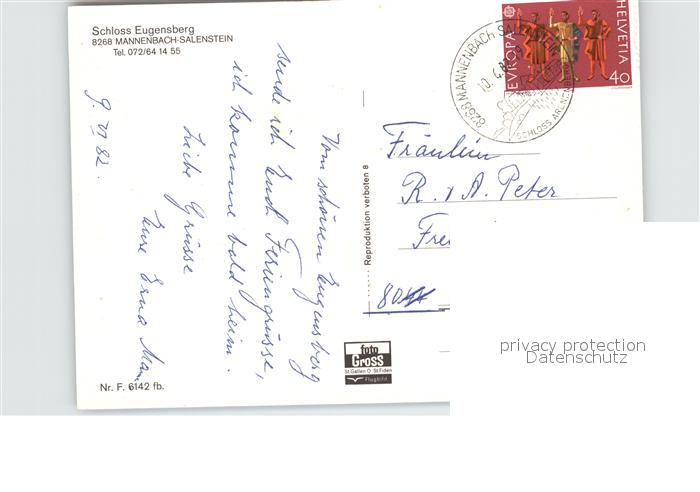 Schloss Eugensberg
8268 MANNENBACH-SALENSTEIN
Tel. 072/64 14 55
9. VI 82.
Vom schönen Eugensberg
sende ich Euch Feriengrüsse,
ich komme bald heim.
Liebe Grüsse
Eure Erna
Nr. F. 6142 fb.
Reproduktion verboten 8
foto
Gross
St Gallen O St Fiden
Flugbild
8268 MANNENBACH-SALENSTEIN
SCHLOSS ARENENBERG
EUROPA
HELVETIA
40
Fräulein
R. + A. Peter
privacy protection
Datenschutz